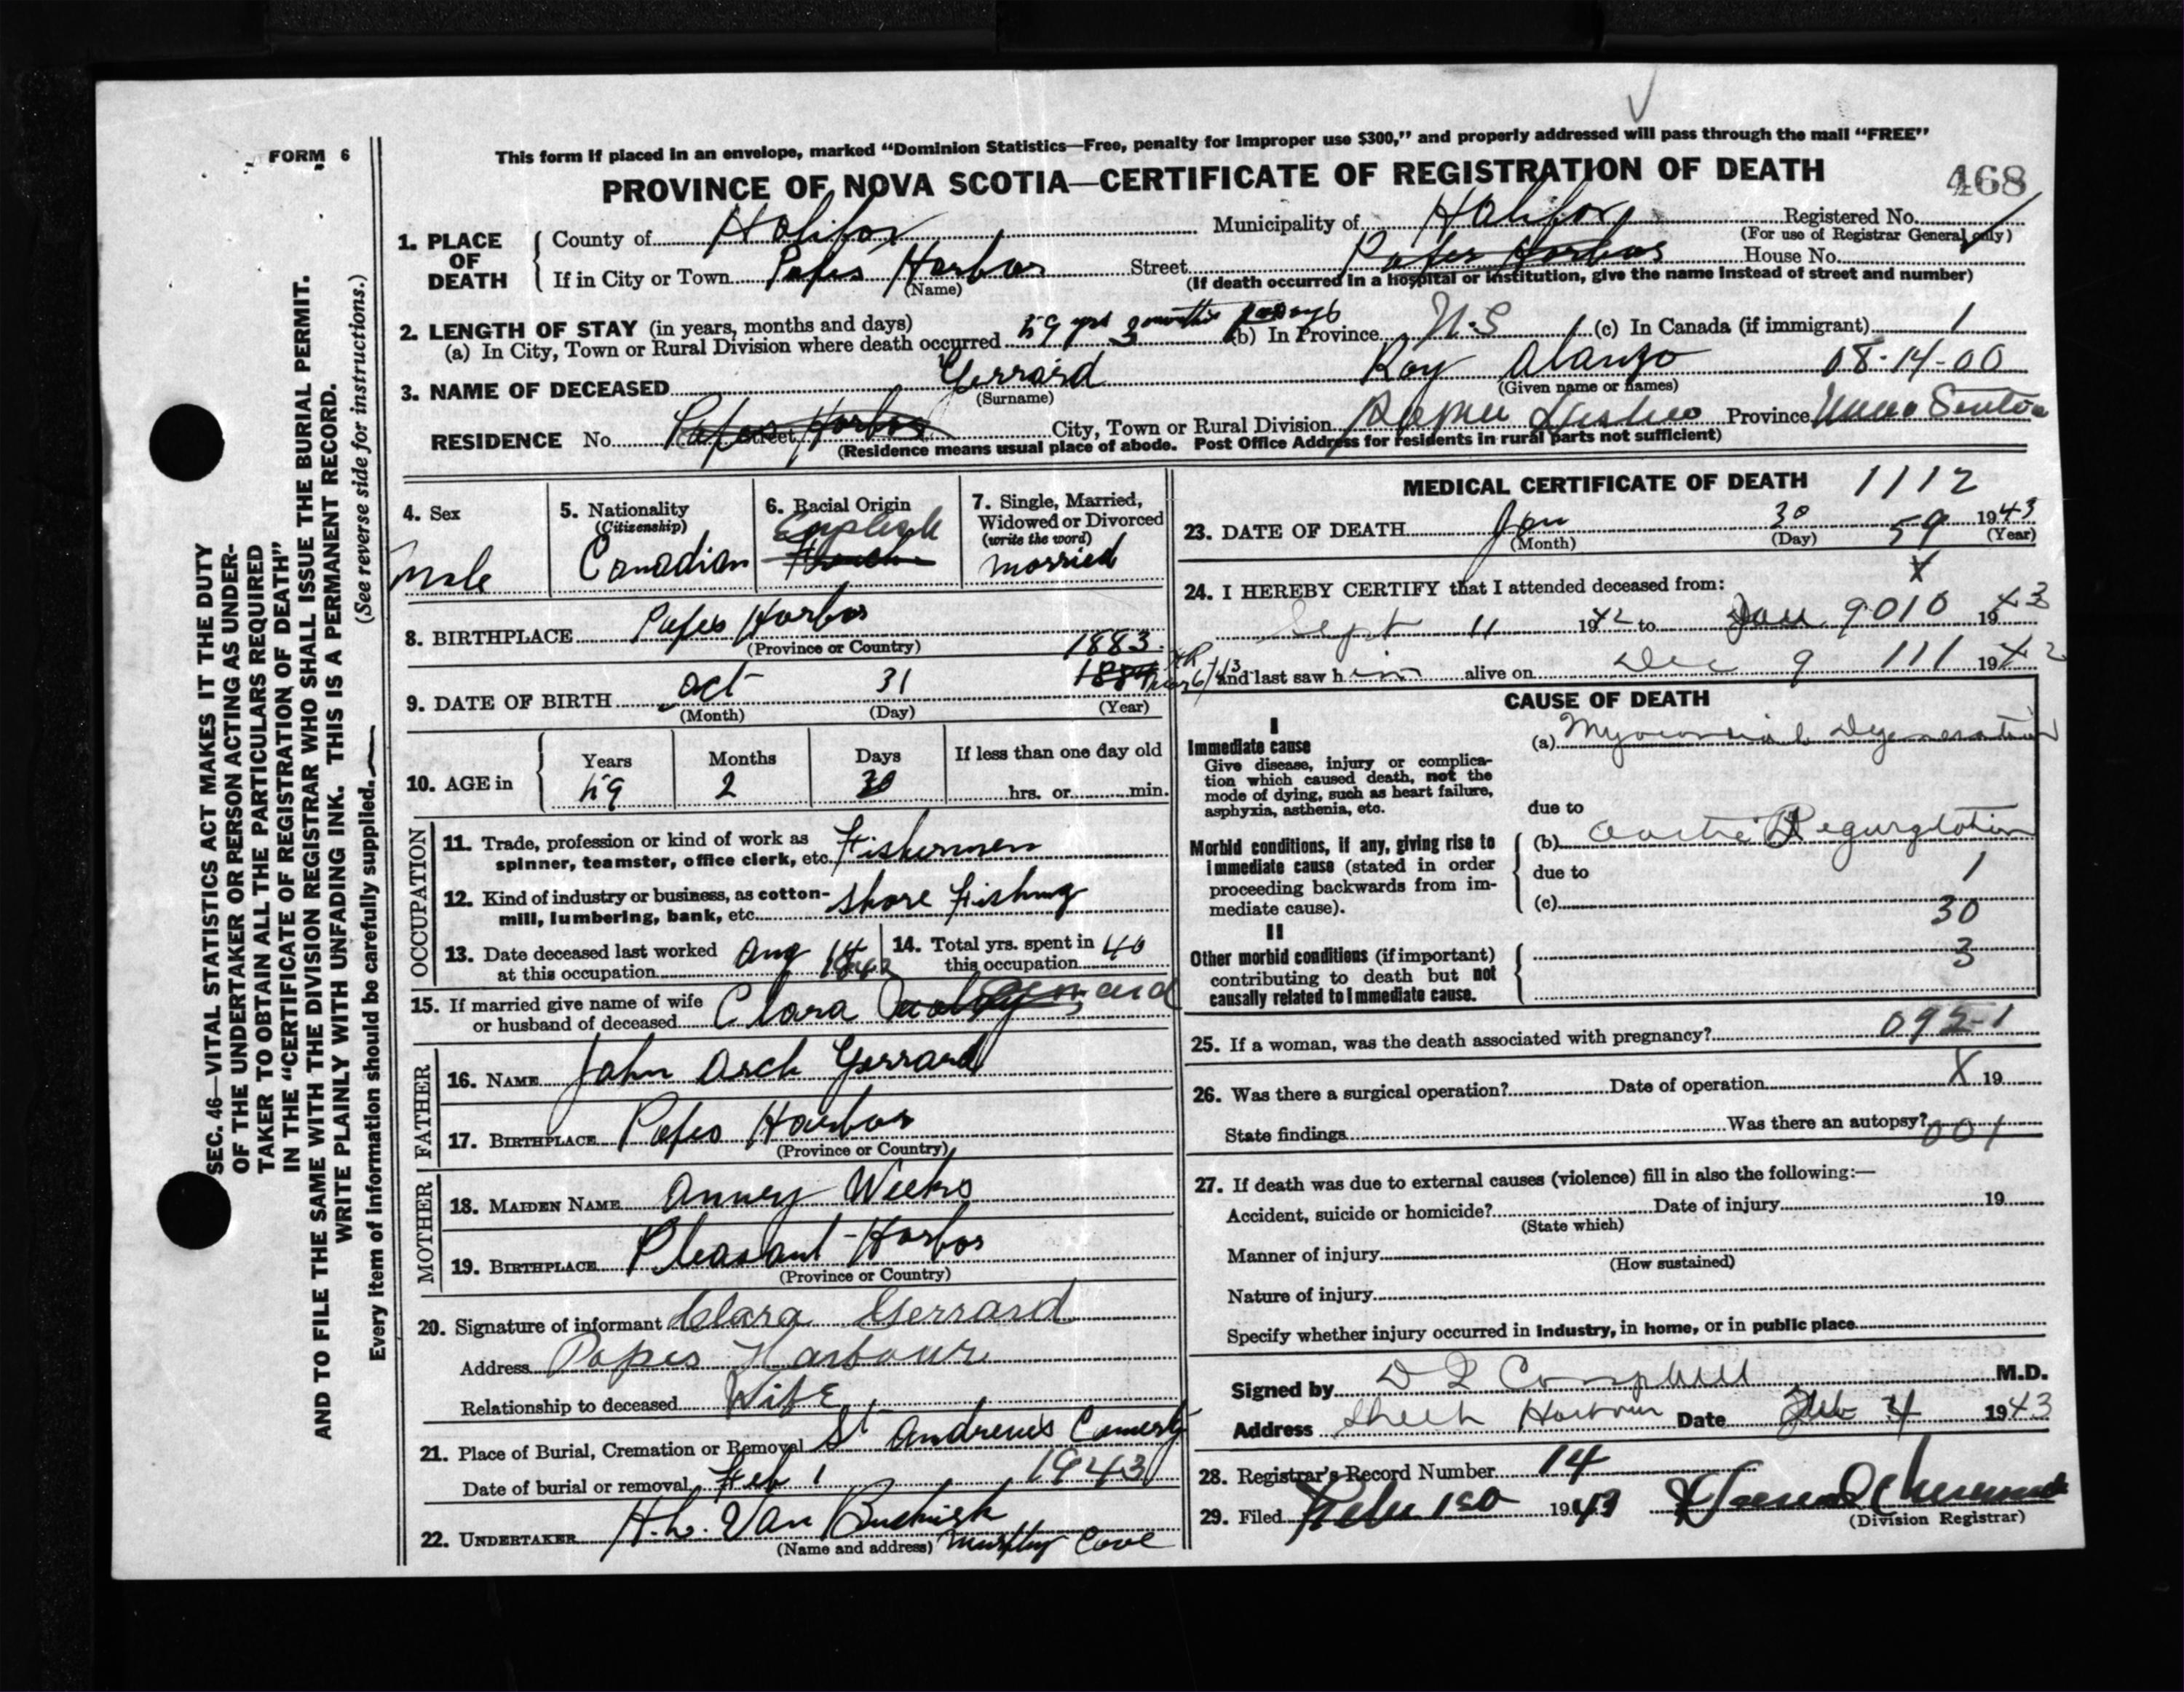 FORM 6
This form if placed in an envelope, marked “Dominion Statistics—Free, penalty for improper use $300,” and properly addressed will pass through the mail “FREE”
PROVINCE OF NOVA SCOTIA—CERTIFICATE OF REGISTRATION OF DEATH
468
1. PLACE OF DEATH
County of Halifax Municipality of Halifax Registered No.
(For use of Registrar General only)
If in City or Town Popes Harbor Street Popes Harbor House No.
(Name) (If death occurred in a hospital or institution, give the name instead of street and number)
2. LENGTH OF STAY (in years, months and days)
(a) In City, Town or Rural Division where death occurred 59 yrs 3 months (b) In Province N.S (c) In Canada (if immigrant) 1
3. NAME OF DECEASED Gerrard Roy Alanzo 08-14-00
(Surname) (Given name or names)
RESIDENCE No. Popes Harbor Street City, Town or Rural Division Province Nova Scotia
(Residence means usual place of abode. Post Office Address for residents in rural parts not sufficient)
4. Sex Male
5. Nationality (Citizenship) Canadian
6. Racial Origin English French
7. Single, Married, Widowed or Divorced (write the word) married
8. BIRTHPLACE Popes Harbor
(Province or Country)
1883
9. DATE OF BIRTH Oct 31 1884
(Month) (Day) (Year)
10. AGE in Years 59 Months 2 Days 30 If less than one day old hrs. or min.
OCCUPATION
11. Trade, profession or kind of work as spinner, teamster, office clerk, etc. Fishermen
12. Kind of industry or business, as cotton-mill, lumbering, bank, etc. Shore Fishing
13. Date deceased last worked at this occupation Aug 1942
14. Total yrs. spent in this occupation 40
15. If married give name of wife or husband of deceased Clara Gerrard
FATHER
16. NAME John Arch Gerrard
17. BIRTHPLACE Popes Harbor
(Province or Country)
MOTHER
18. MAIDEN NAME Anney Weeks
19. BIRTHPLACE Pleasant Harbor
(Province or Country)
20. Signature of informant Clara Gerrard
Address Popes Harbour
Relationship to deceased Wife
21. Place of Burial, Cremation or Removal St Andrews Cemerty
Date of burial or removal Feb 1 1943
22. UNDERTAKER H.W. Van Buskirk
(Name and address) Murphy Cove
MEDICAL CERTIFICATE OF DEATH 1112
23. DATE OF DEATH Jan 30 59 1943
(Month) (Day) (Year)
X
24. I HEREBY CERTIFY that I attended deceased from:
Sept 11 1942 to Jan 9 010 1943
and last saw him alive on Dec 9 111 1942
CAUSE OF DEATH
I
Immediate cause
Give disease, injury or complication which caused death, not the mode of dying, such as heart failure, asphyxia, asthenia, etc.
(a) Myocardial Degeneration
due to
Morbid conditions, if any, giving rise to immediate cause (stated in order proceeding backwards from immediate cause).
(b) Aortic Regurgtation
due to 1
(c) 30
II
Other morbid conditions (if important) contributing to death but not causally related to immediate cause. 3
25. If a woman, was the death associated with pregnancy? 095-1
26. Was there a surgical operation? Date of operation X 19
State findings Was there an autopsy? 001
27. If death was due to external causes (violence) fill in also the following:—
Accident, suicide or homicide? Date of injury 19
(State which)
Manner of injury
(How sustained)
Nature of injury
Specify whether injury occurred in industry, in home, or in public place
Signed by D L Campbell M.D.
Address Sheet Harbour Date Feb 4 1943
28. Registrar's Record Number 14
29. Filed 1943
(Division Registrar)
SEC. 46—VITAL STATISTICS ACT MAKES IT THE DUTY
OF THE UNDERTAKER OR PERSON ACTING AS UNDER-
TAKER TO OBTAIN ALL THE PARTICULARS REQUIRED
IN THE “CERTIFICATE OF REGISTRATION OF DEATH”
AND TO FILE THE SAME WITH THE DIVISION REGISTRAR WHO SHALL ISSUE THE BURIAL PERMIT.
WRITE PLAINLY WITH UNFADING INK. THIS IS A PERMANENT RECORD.
Every item of information should be carefully supplied. (See reverse side for instructions.)